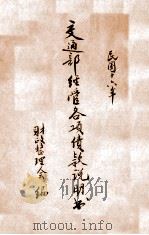 民國十六年
交通部經管各項債款說明書
財政整理會編
mtoou.info
mtoou.info